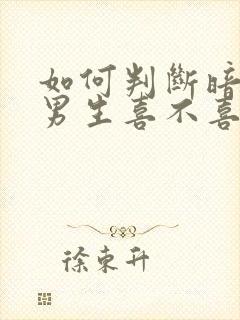 如何判斷暗
男生喜不喜
徐東升